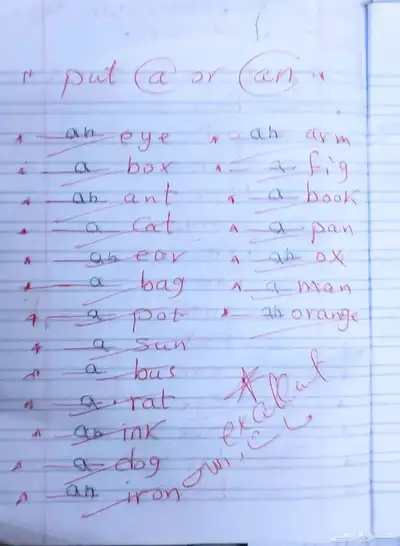 " put a or an "
an eye
a box
an ant
a cat
an ear
a bag
a pot
a sun
a bus
a rat
an ink
a dog
an iron
an arm
a fig
a book
a pan
an ox
a man
an orange
excellent